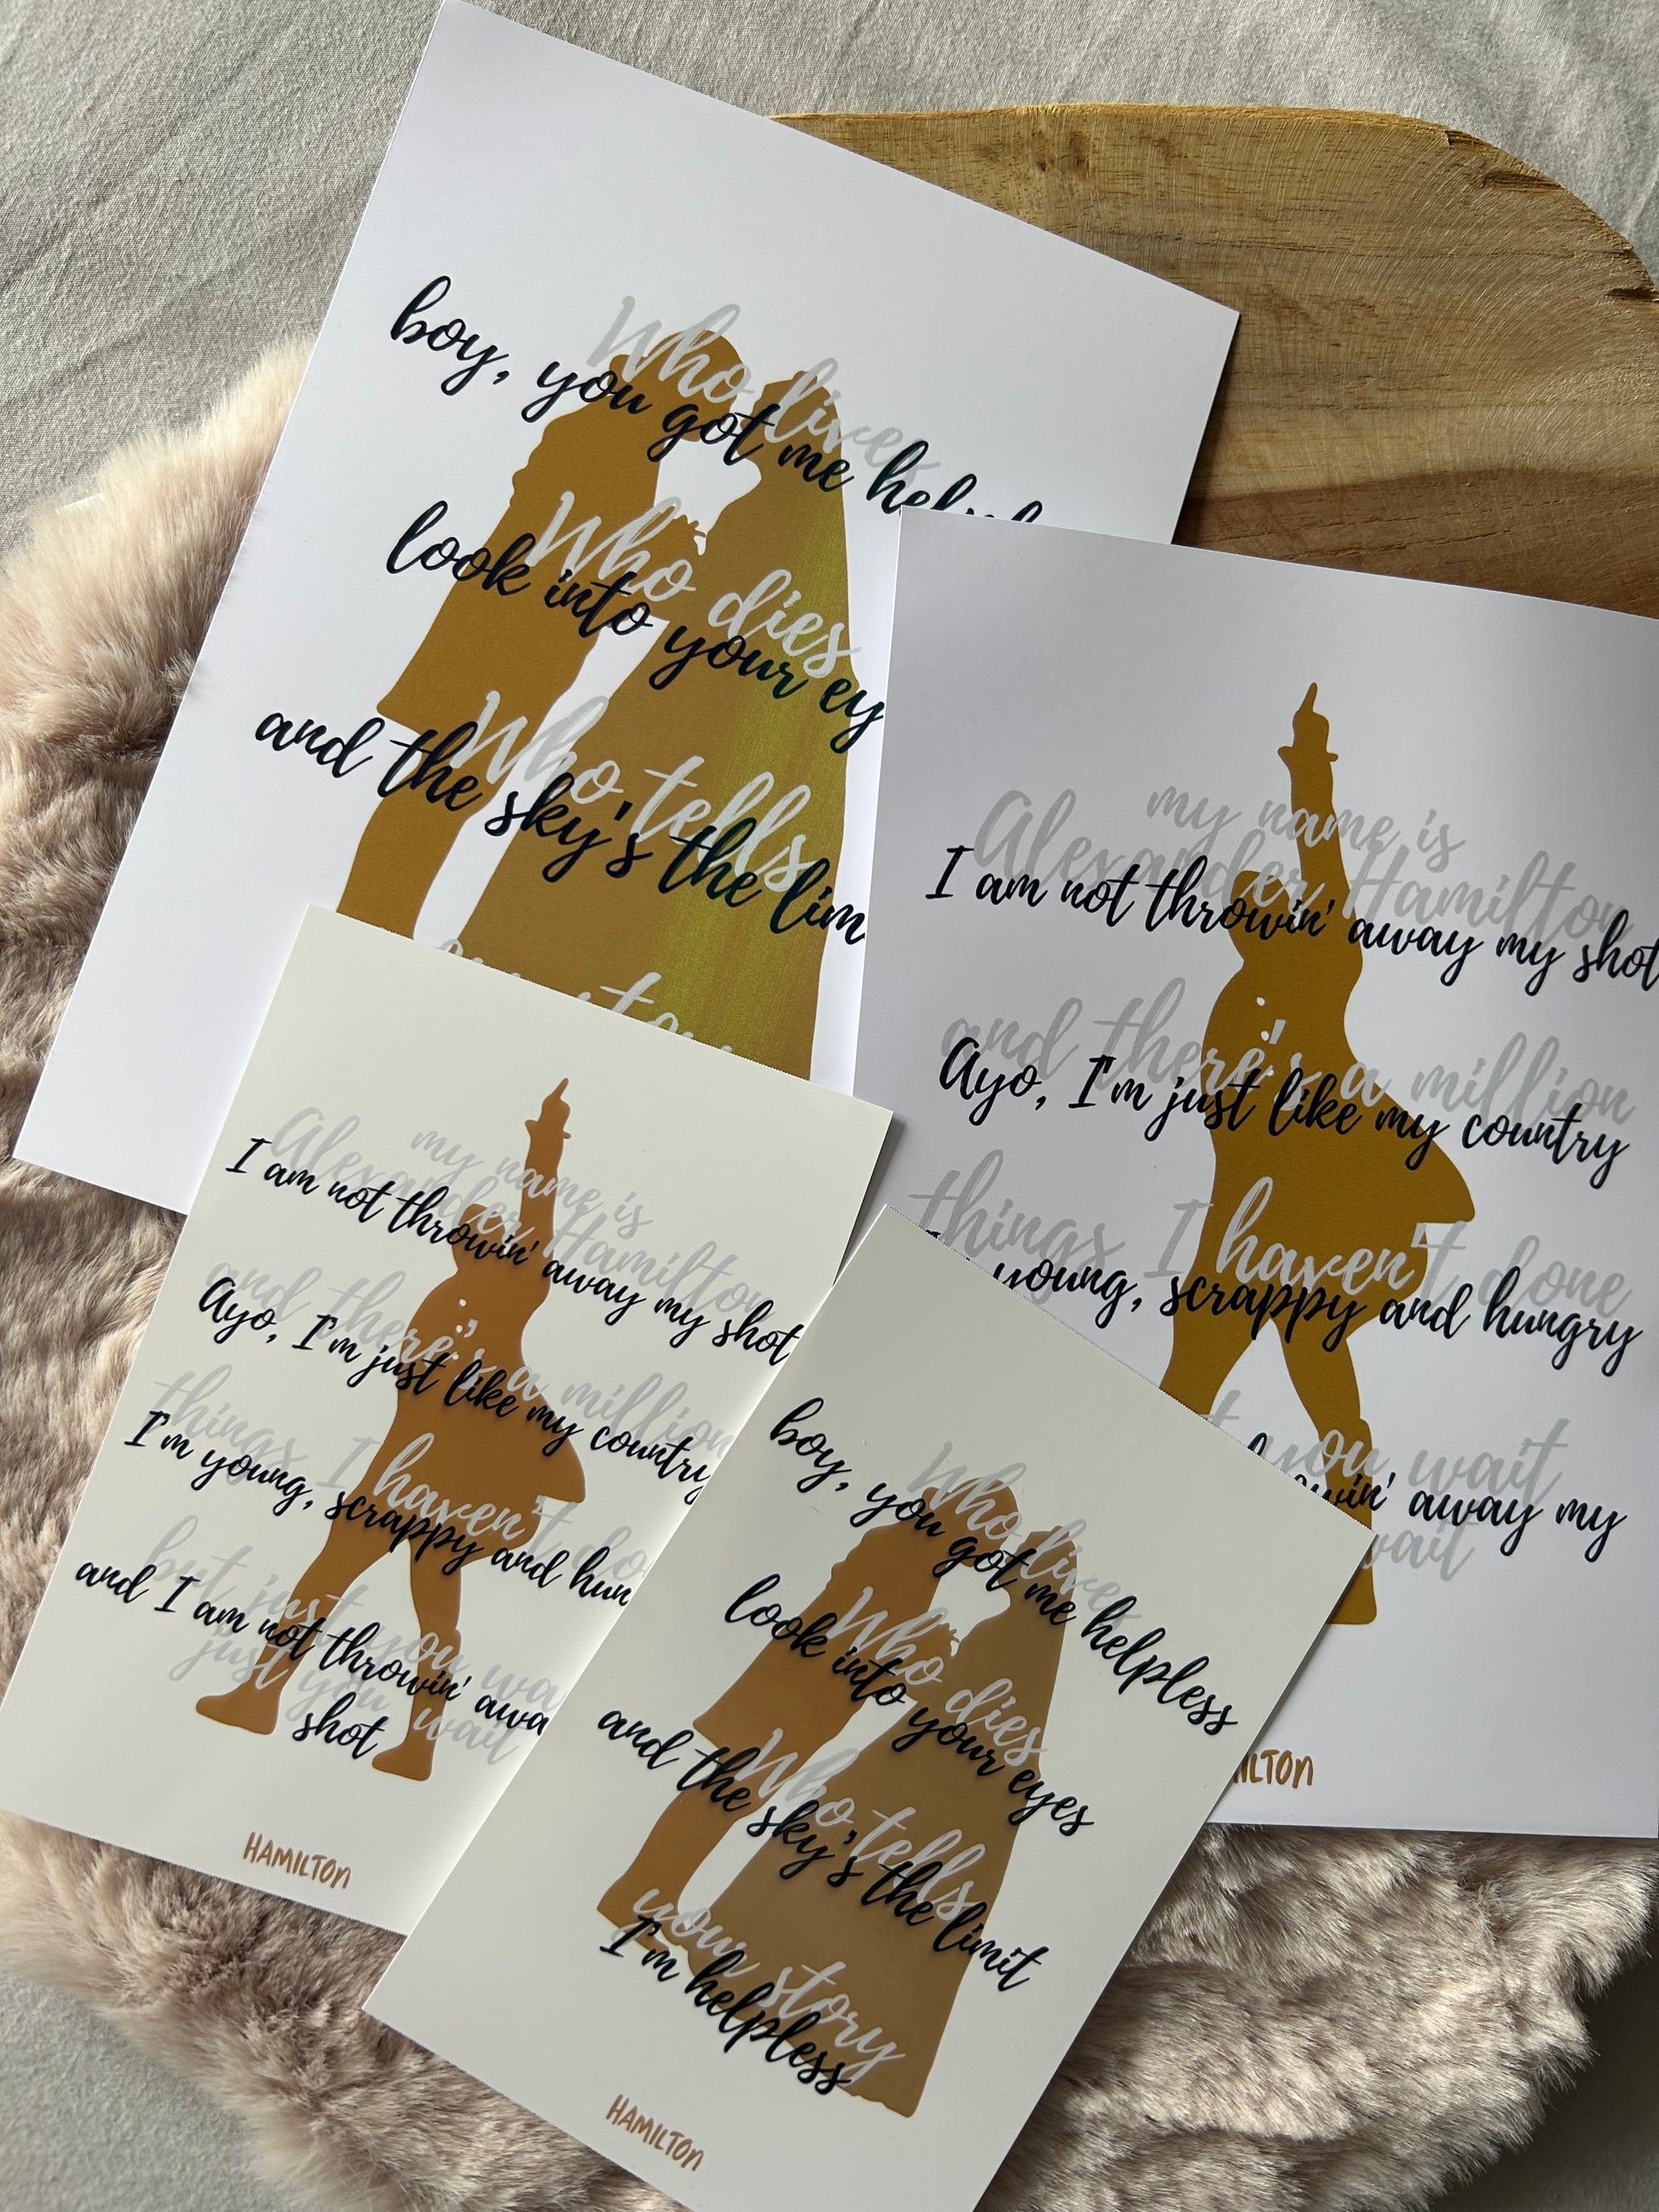 Who lives
boy, you got me
Who dies
look into your ey
Who tells
and the sky's the lim
my name is
Alexander Hamilton
I am not throwin' away my shot
and there's a million
Ayo, I'm just like my country
things I haven't done
young, scrappy and hungry
you wait
away my
wait
my name is
Alexander Hamilton
I am not throwin' away my shot
and there's a million
Ayo, I'm just like my country
things I haven't do
I'm young, scrappy and hun
but just you wa
and I am not throwin' awa
just you wait
shot
HAMILTON
Who lives
boy, you got me helpless
Who dies
look into your eyes
Who tells
and the sky's the limit
your story
I'm helpless
HAMILTON
ILTON